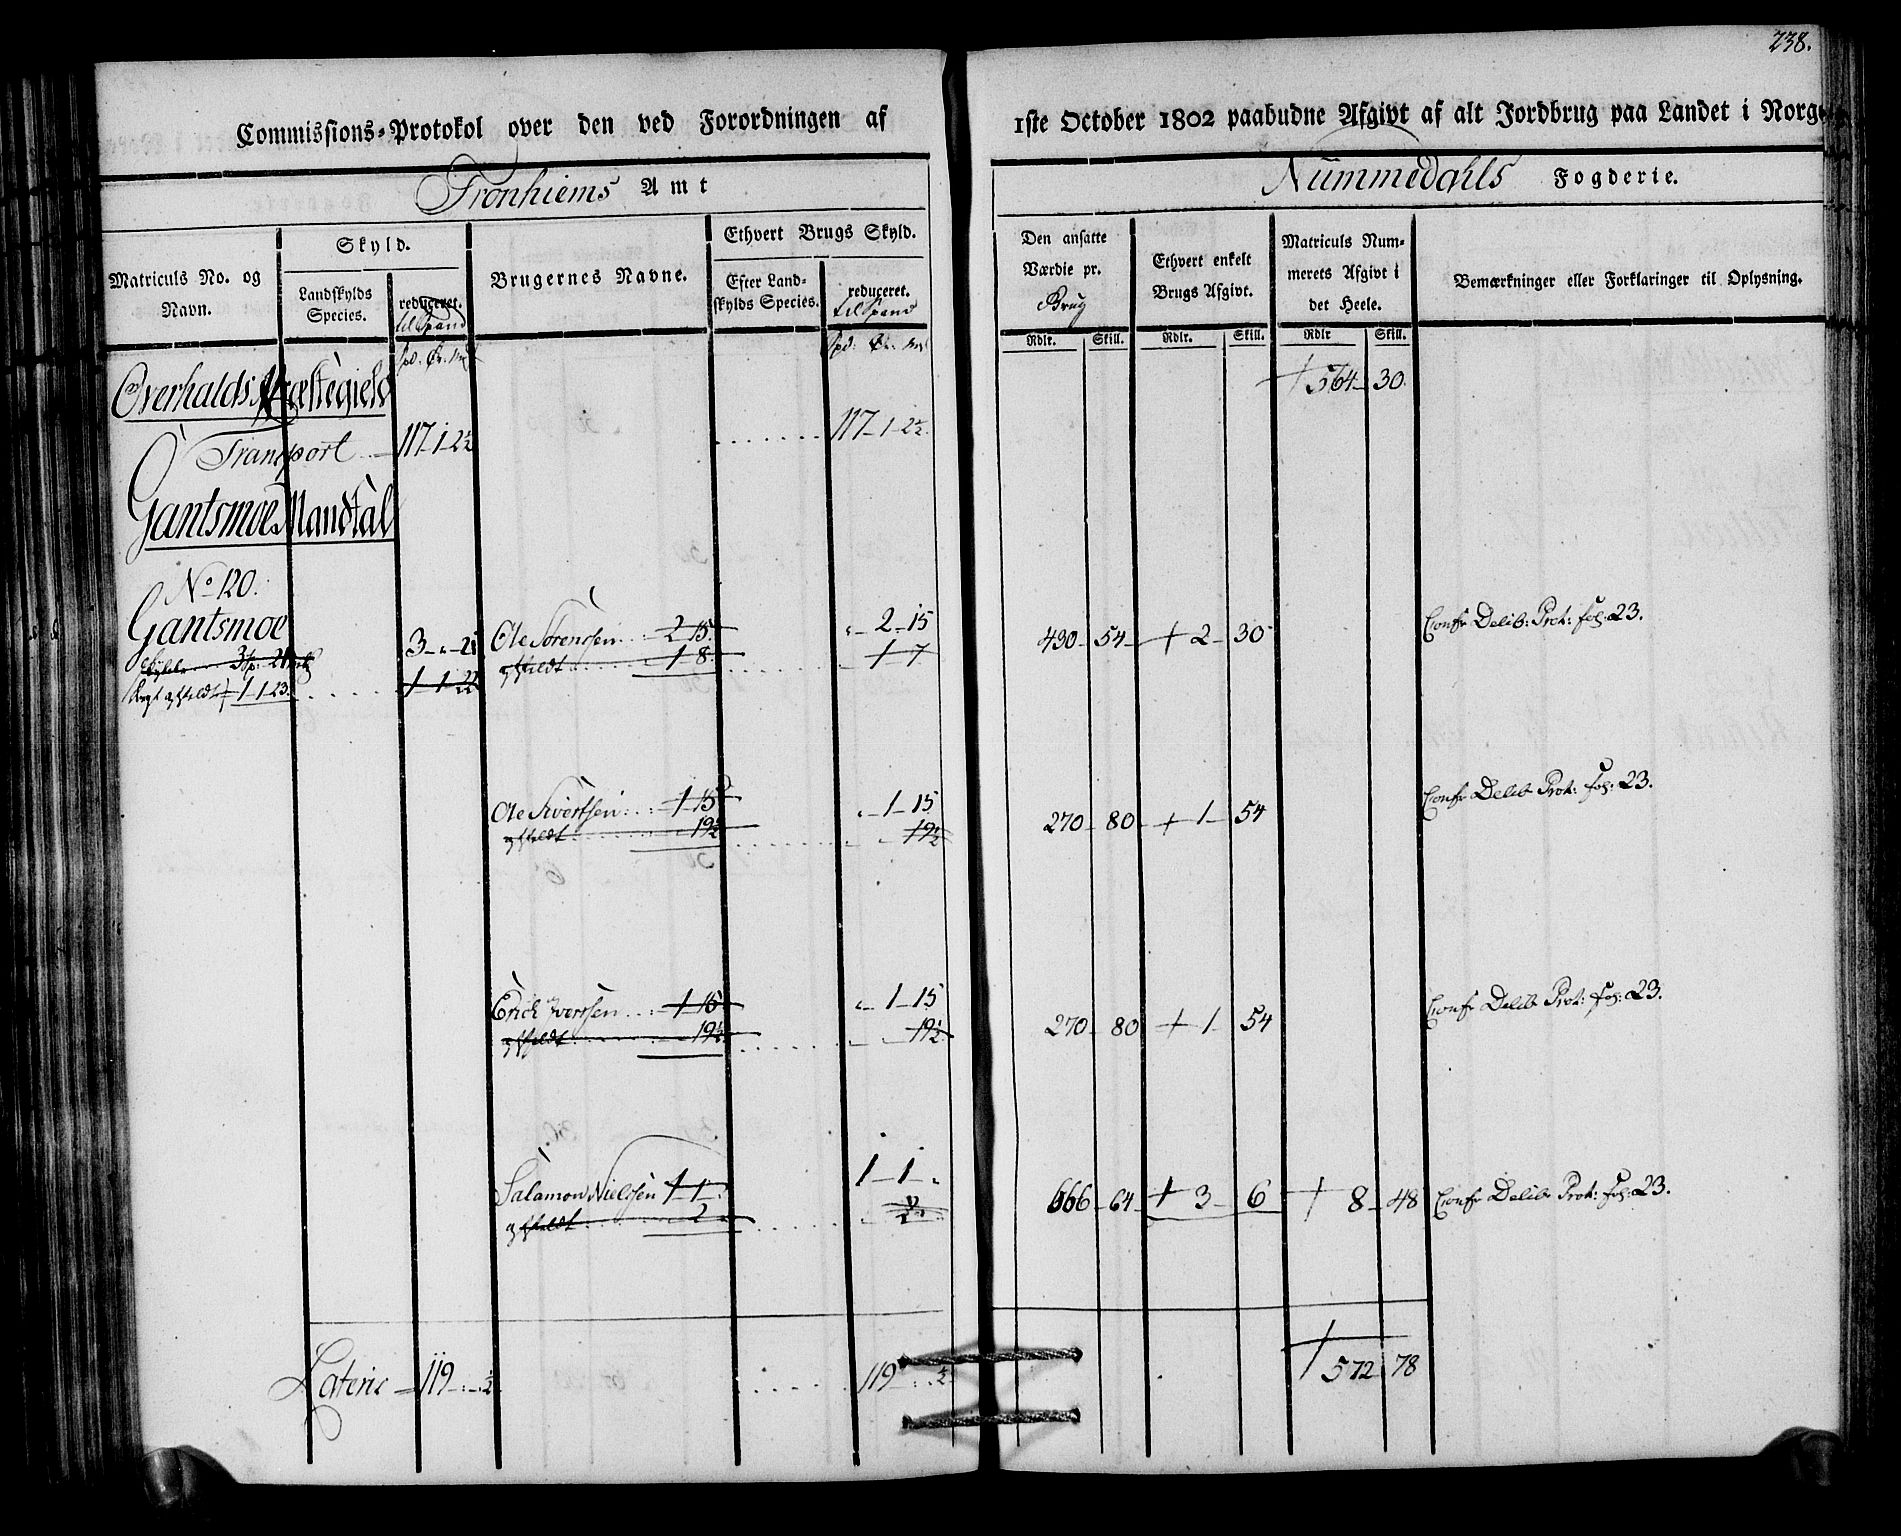 238.
Commissions-Protokol over den ved Forordningen af 1ste October 1802 paabudne Afgivt af alt Jordbrug paa Landet i Norge
Tronhiems Amt Nummedahls Fogderie.
Matriculs No. og Navn.
Skyld.
Landskylds Species.
reduceret. til Spand
Brugernes Navne.
Ethvert Brugs Skyld.
Efter Landskylds Species.
reduceret. til Spand
Den ansatte Værdie pr. Brug
Ethvert enkelt Brugs Afgivt.
Matriculs Nummerets Afgivt i det Heele.
Bemærkninger eller Forklaringer til Oplysning.
Rdlr. Skill. Rdlr. Skill. Rdlr Skill.
Overhalds Præstegield 564 30.
Transport 117-1-2½ 117-1-2½.
Gantsmoe Mandtal
No 120.
Gantsmoe 3-"-21 Ole Sørenssen 2 15. "-2-15 430-54 + 2-30 Confr Delib: Prot: fol: 23.
afskeldt 1 8. 1 7
1-1-23. 1-1-22
Ole Sivertsen 1 15 "-1-15 270-80 + 1-54 Confr Delib Prot: fol: 23.
afskeldt 19½ 19½
Erich Iverssen 1 15 "-1-15 270-80 + 1-54 Confr Delib Prot: fol: 23.
afskeldt 19½ 19½
Salamon Nielssen 1 1 1-1-" 666-64 + 3-6 + 8-48 Confr Delib Prot: fol: 23.
afskeldt 2 2
Lateris 119 ½ 119 ½ + 572 78